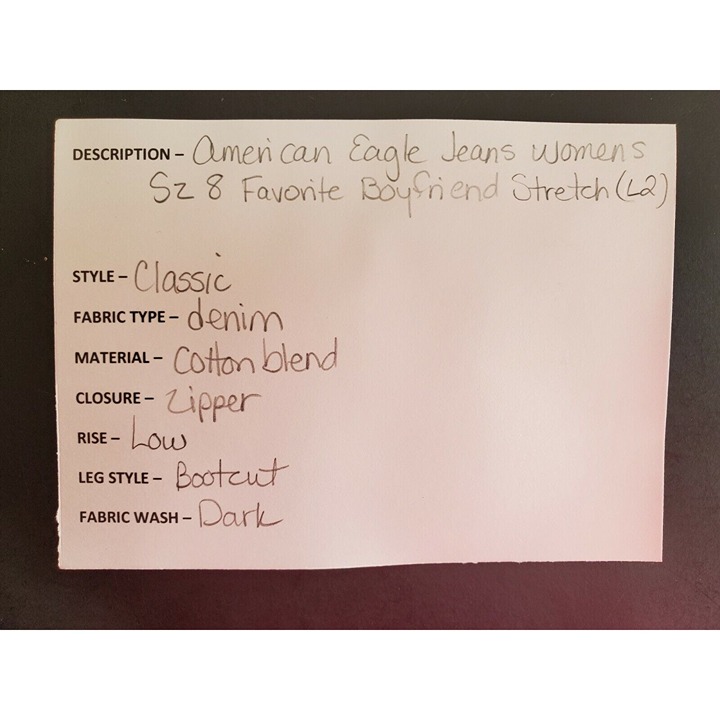 DESCRIPTION – American Eagle Jeans womens
Sz 8 Favorite Boyfriend Stretch (L2)
STYLE – Classic
FABRIC TYPE – denim
MATERIAL – Cotton blend
CLOSURE – Zipper
RISE – Low
LEG STYLE – Bootcut
FABRIC WASH – Dark